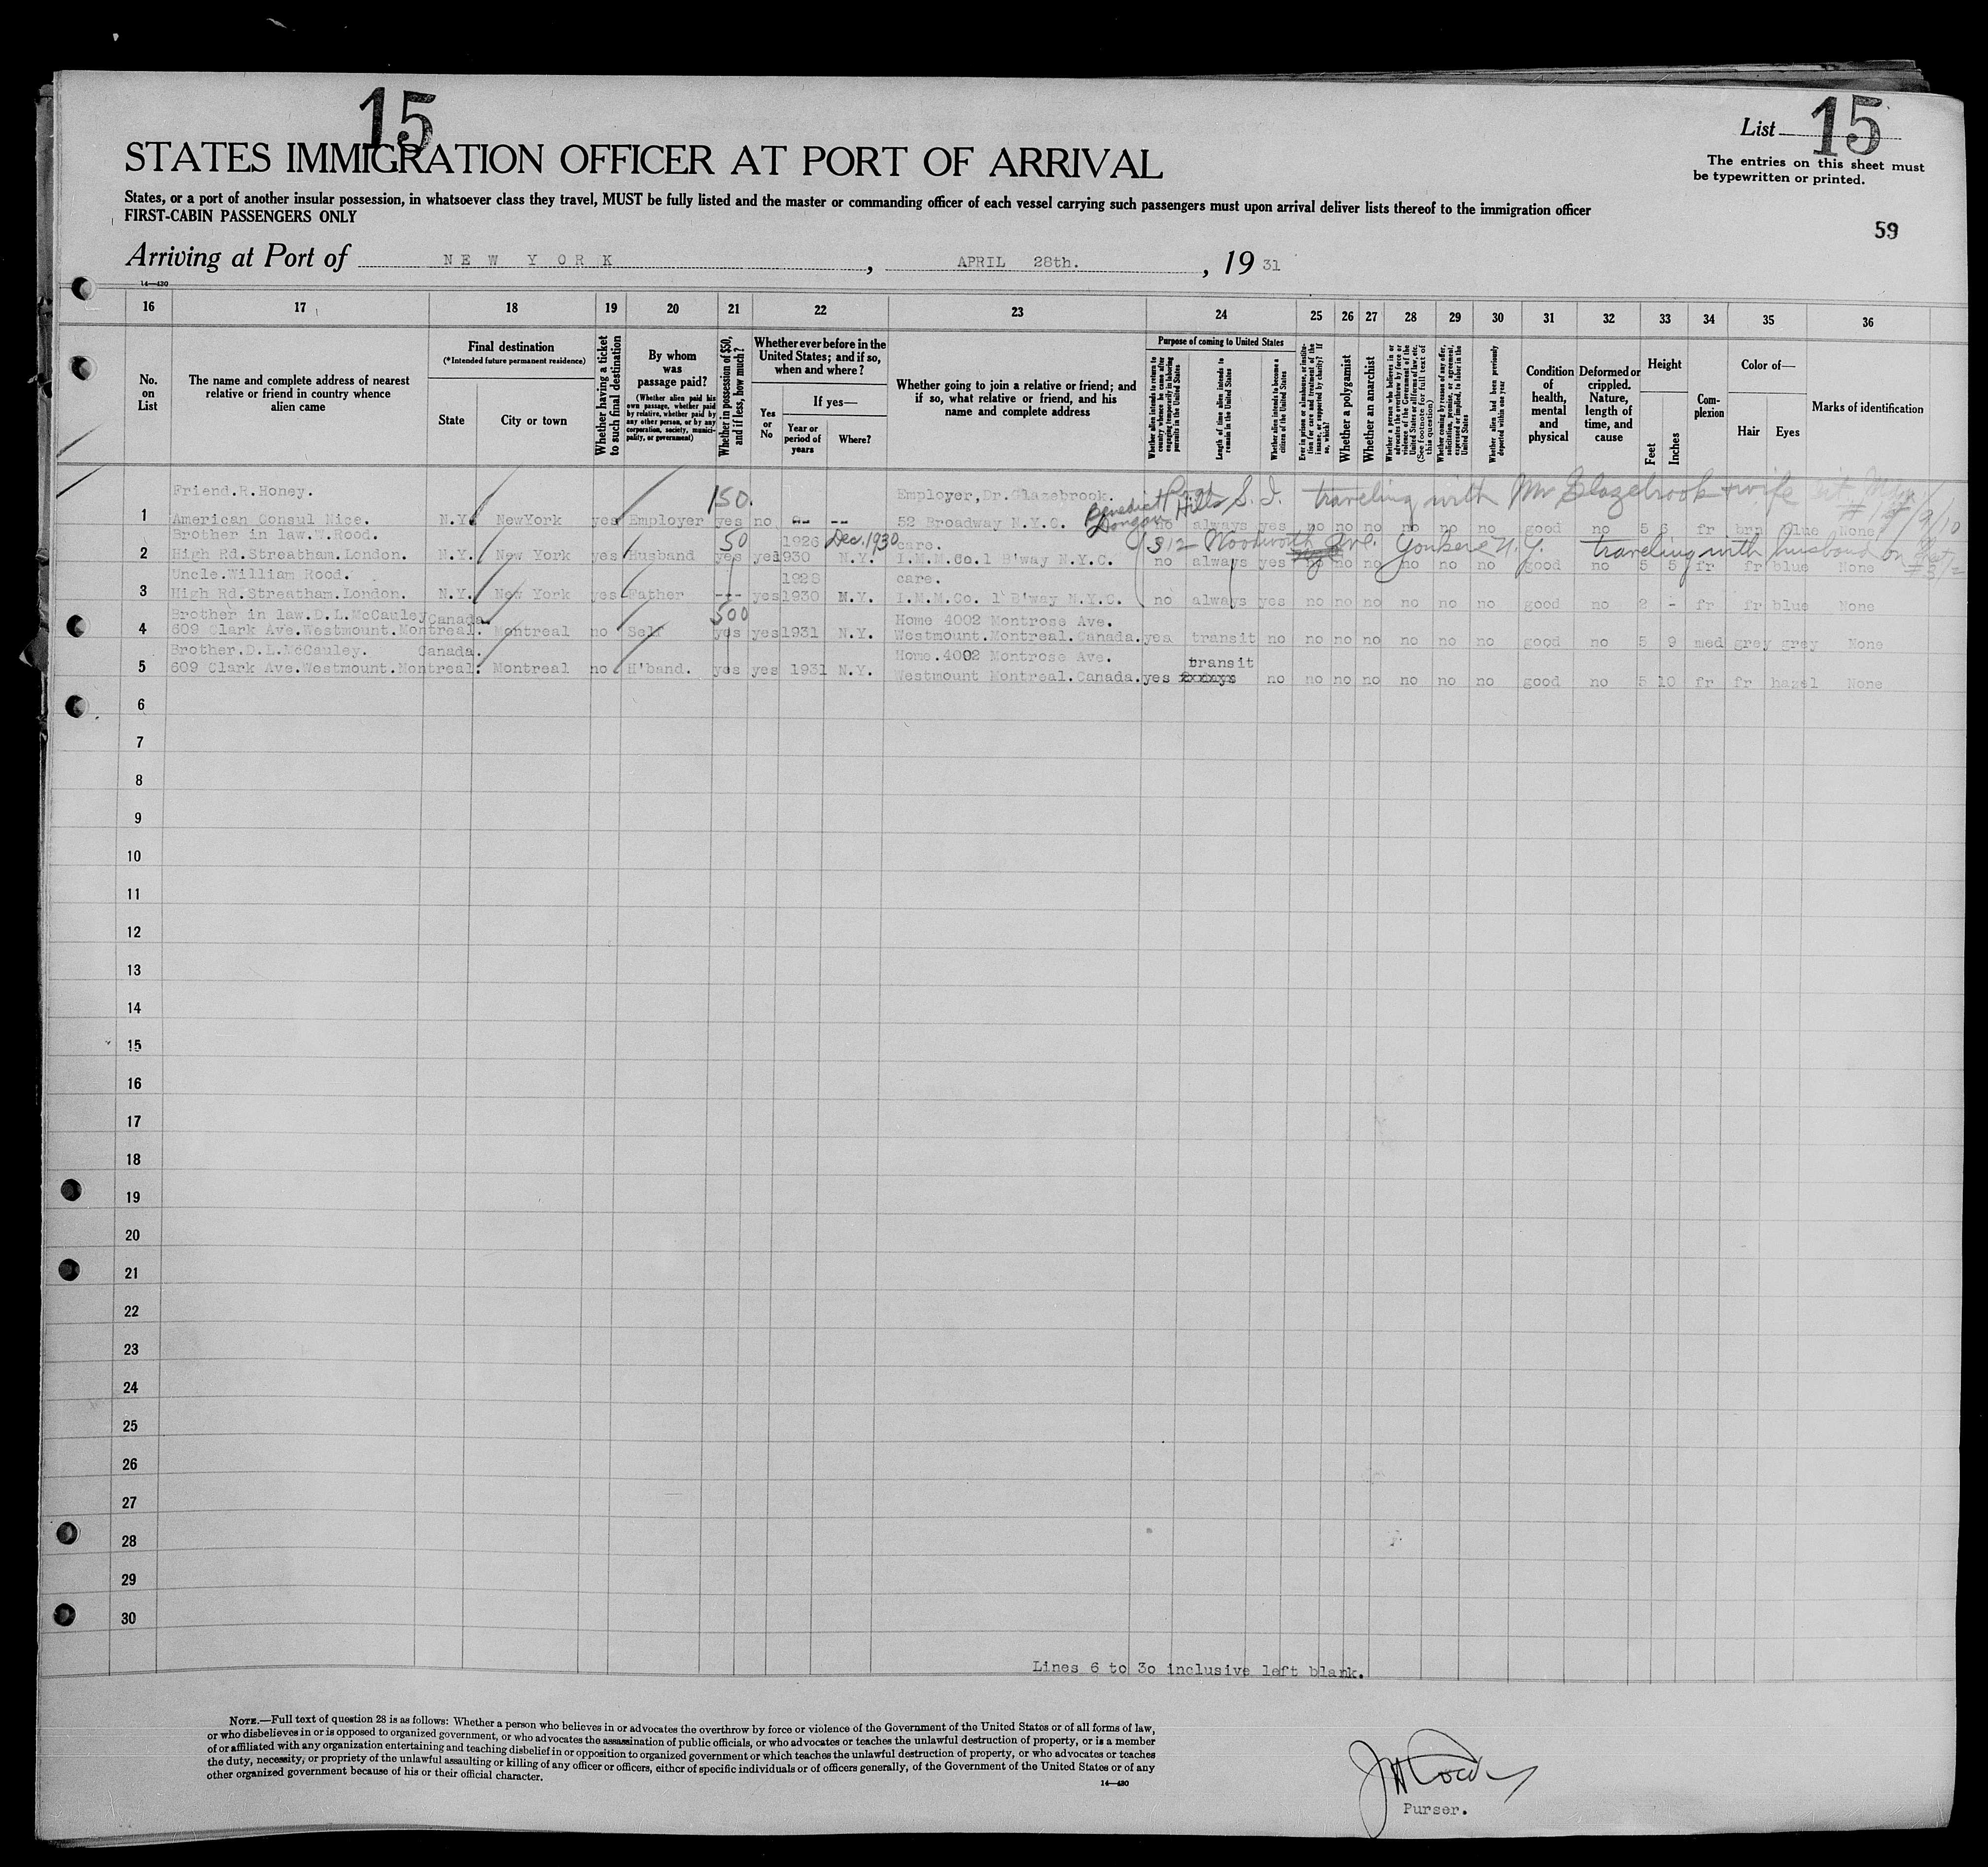 15
List 15
STATES IMMIGRATION OFFICER AT PORT OF ARRIVAL
The entries on this sheet must
be typewritten or printed.
States, or a port of another insular possession, in whatsoever class they travel, MUST be fully listed and the master or commanding officer of each vessel carrying such passengers must upon arrival deliver lists thereof to the immigration officer
FIRST-CABIN PASSENGERS ONLY
59
Arriving at Port of NEW YORK, APRIL 28th., 1931
14—430
16 17 18 19 20 21 22 23 24 25 26 27 28 29 30 31 32 33 34 35 36
No. on List
The name and complete address of nearest relative or friend in country whence alien came
Final destination
(*Intended future permanent residence)
State
City or town
Whether having a ticket to such final destination
By whom was passage paid?
(Whether alien paid his own passage, whether paid by relative, whether paid by any other person, or by any corporation, society, municipality, or government)
Whether in possession of $50, and if less, how much?
Whether ever before in the United States; and if so, when and where?
Yes or No
If yes—
Year or period of years
Where?
Whether going to join a relative or friend; and if so, what relative or friend, and his name and complete address
Purpose of coming to United States
Whether alien intends to return to country whence he came after engaging temporarily in laboring pursuits in the United States
Length of time alien intends to remain in the United States
Whether alien intends to become a citizen of the United States
Ever in prison or almshouse, or institution for care and treatment of the insane, or supported by charity? If so, which?
Whether a polygamist
Whether an anarchist
Whether a person who believes in or advocates the overthrow by force or violence of the Government of the United States or all forms of law, etc. (See footnote for full text of this question)
Whether coming by reason of any offer, solicitation, promise, or agreement, expressed or implied, to labor in the United States
Whether alien had been previously deported within one year
Condition of health, mental and physical
Deformed or crippled. Nature, length of time, and cause
Height
Feet
Inches
Complexion
Color of—
Hair
Eyes
Marks of identification
Friend.R.Honey. 150. Employer,Dr.Glazebrook. Benedict Road Dongan Hills S.I. traveling with Mr Glazebrook + wife
1 American Consul Nice. N.Y. NewYork yes Employer yes no -- -- 52 Broadway N.Y.C. no always yes no no no no no no good no 5 6 fr brn blue None
Brother in law.W.Rood. 50 1926 Dec.,1930 care. 312 Woodworth Ave. Yonkers N.Y. traveling with husband on
2 High Rd.Streatham.London. N.Y. New York yes Husband yes yes 1930 N.Y. I.M.M.Co.1 B'way N.Y.C. no always yes no no no no no no good no 5 5 fr fr blue None
Uncle.William Rood. 1928 care.
3 High Rd.Streatham.London. N.Y. New York yes Father --- yes 1930 N.Y. I.M.M.Co. 1 B'way N.Y.C. no always yes no no no no no no good no 2 - fr fr blue None
Brother in law.D.L.McCauley Canada. 500 Home 4002 Montrose Ave.
4 609 Clark Ave.Westmount.Montreal. Montreal no Self yes yes 1931 N.Y. Westmount.Montreal.Canada. yes transit no no no no no no no good no 5 9 med grey grey None
Brother.D.L.McCauley. Canada. Home.4002 Montrose Ave. transit
5 609 Clark Ave.Westmount.Montreal. Montreal no H'band. yes yes 1931 N.Y. Westmount Montreal.Canada. yes no no no no no no no good no 5 10 fr fr hazel None
6
7
8
9
10
11
12
13
14
15
16
17
18
19
20
21
22
23
24
25
26
27
28
29
30
Lines 6 to 30 inclusive left blank.
NOTE.—Full text of question 28 is as follows: Whether a person who believes in or advocates the overthrow by force or violence of the Government of the United States or of all forms of law,
or who disbelieves in or is opposed to organized government, or who advocates the assassination of public officials, or who advocates or teaches the unlawful destruction of property, or is a member
of or affiliated with any organization entertaining and teaching disbelief in or opposition to organized government or which teaches the unlawful destruction of property, or who advocates or teaches
the duty, necessity, or propriety of the unlawful assaulting or killing of any officer or officers, either of specific individuals or of officers generally, of the Government of the United States or of any
other organized government because of his or their official character.
14—430
Purser.